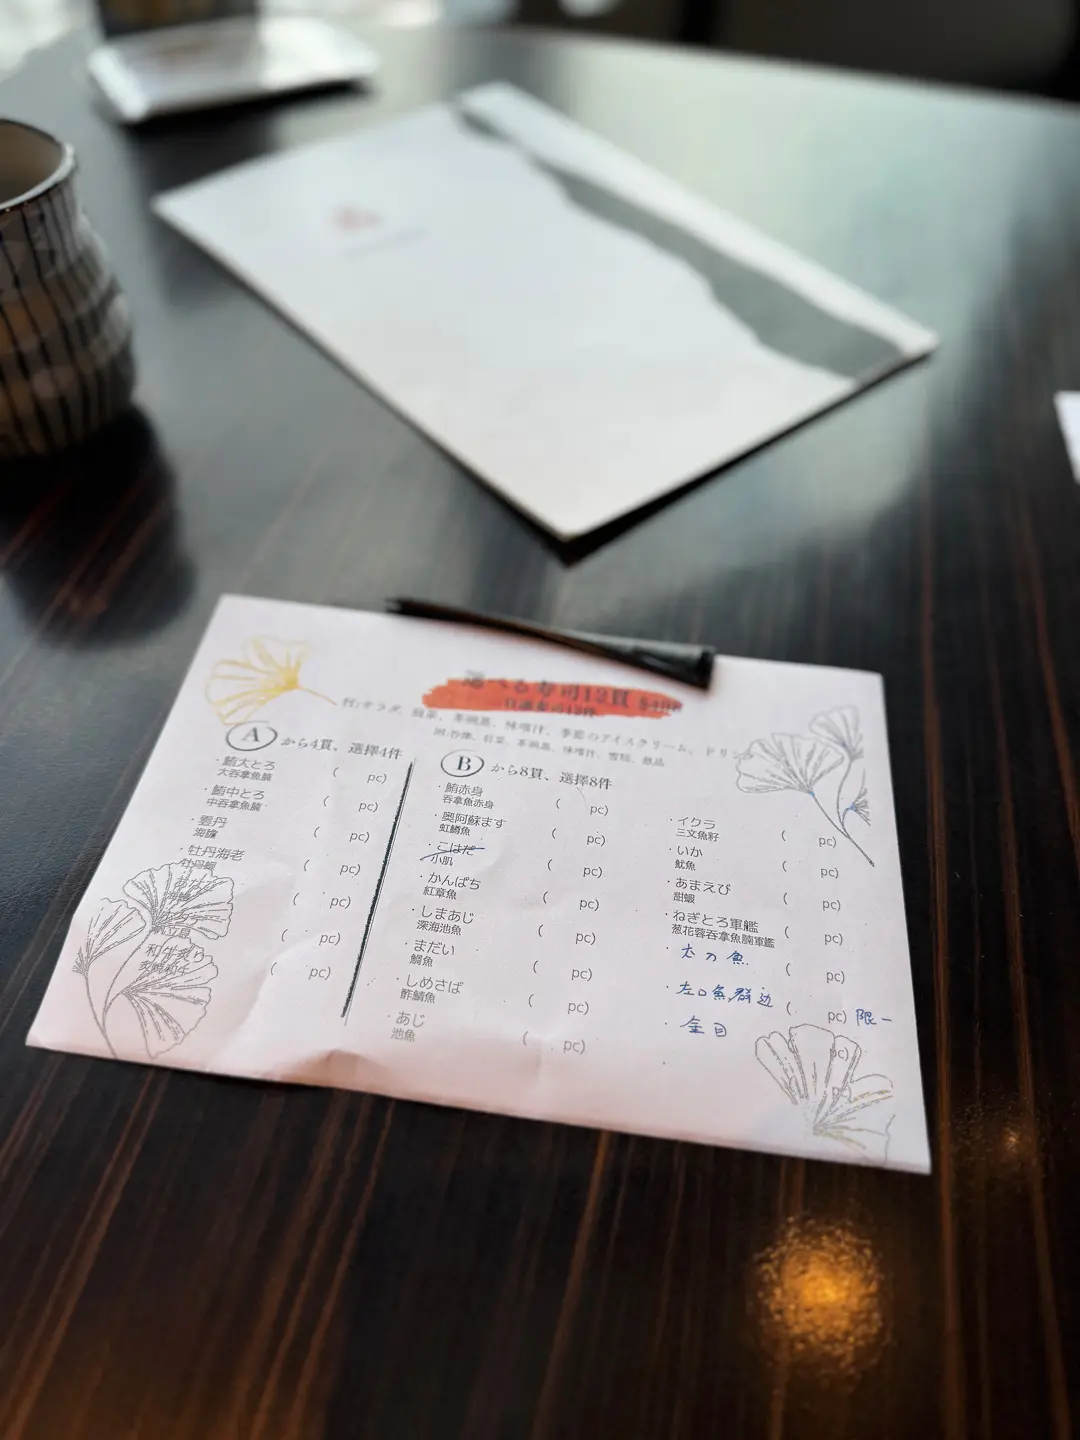 選べる寿司12貫
自選寿司12件
付:サラダ、前菜、茶碗蒸、味噌汁、季節のアイスクリーム、ドリンク
附:沙律、前菜、茶碗蒸、味噌汁、雪糕、飲品
A から4貫、選擇4件
・鮪大とろ ( pc)
大吞拿魚腩
・鮪中とろ ( pc)
中吞拿魚腩
・雲丹 ( pc)
海膽
・牡丹海老 ( pc)
牡丹蝦
( pc)
( pc)
帆立貝
和牛炙り ( pc)
炙燒和牛
B から8貫、選擇8件
・鮪赤身 ( pc)
吞拿魚赤身
・奥阿蘇ます ( pc)
虹鱒魚
・こはだ ( pc)
小肌
・かんぱち ( pc)
紅章魚
・しまあじ ( pc)
深海池魚
・まだい ( pc)
鯛魚
・しめさば ( pc)
酢鯖魚
・あじ ( pc)
池魚
・イクラ ( pc)
三文魚籽
・いか ( pc)
魷魚
・あまえび ( pc)
甜蝦
・ねぎとろ軍艦 ( pc)
葱花蓉吞拿魚腩軍艦
・太刀魚 ( pc)
・左口魚群边 ( pc) 限一
・金目 pc)
・ pc)